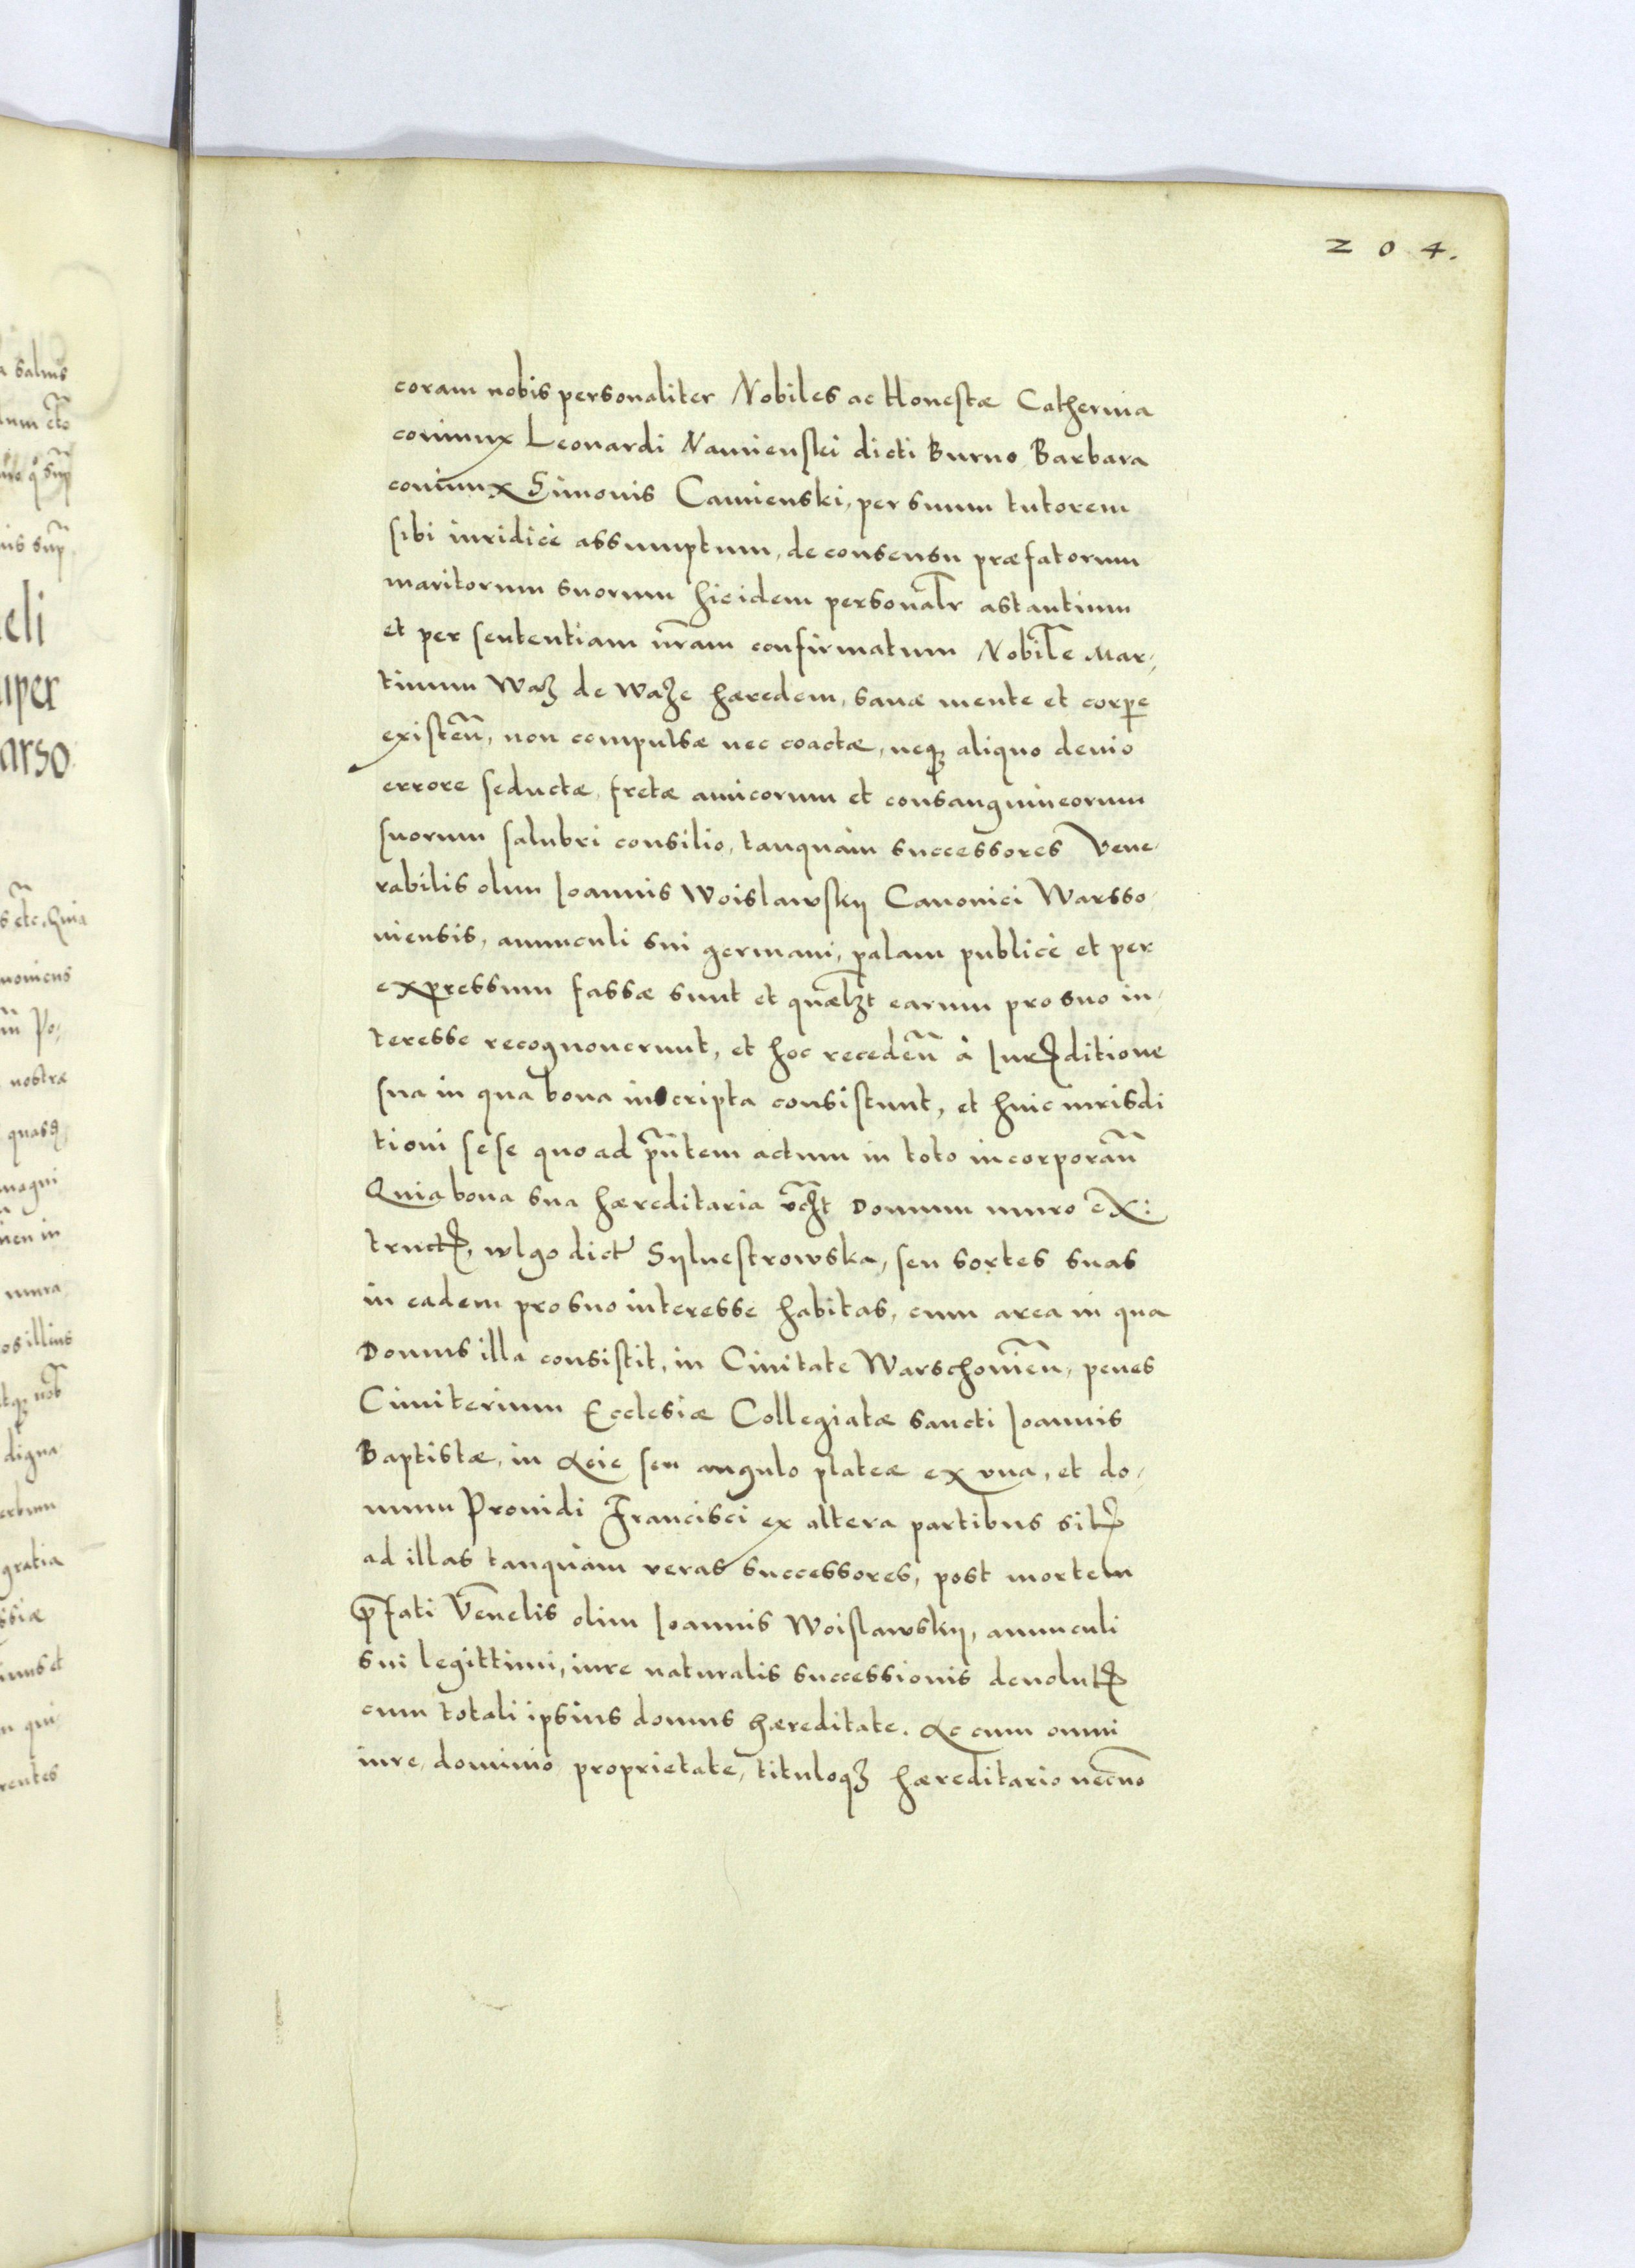 204.
coram nobis personaliter Nobiles ac Honestæ Catherina
coniunx Leonardi Namienski dicti Burno Barbara
coniunx Simonis Camienski, per suum tutorem
sibi iuridicè assumptum, de consensu præfatorum
maritorum suorum hic idem personalr̃ astantium
et per sententiam nr̃am confirmatum Nobilẽ Mar-
tinum Waz de Waze hæredem, sanæ mente et corpe
existeñ, non compulsæ nec coactæ, neqz aliquo deuio
errore seductæ, fretæ amicorum et consanguineorum
suorum salubri consilio, tanquàm successores Vene-
rabilis olim Ioannis Woislawskij Canonici Warsso-
uiensis, auunculi sui germani, palam publicè et per
expressum fassæ sunt et quælzt earum pro suo in-
teresse recognouerunt, et hoc recedeñ à Iurisditione
sua in qua bona inscripta consistunt, et huic iurisdi
tioni sese quo ad pñtem actum in toto incorporañ
Quia bona sua hæreditaria vczt Domum muro ex:
truct, wlgo dict Syluestrowska, seu sortes suas
in eadem pro suo interesse habitas, cum area in qua
Domus illa consistit, in Ciuitate Warschouieñ, penes
Cimiterium Ecclesiæ Collegiatæ sancti Ioannis
Baptistæ, in Acie seu angulo plateæ ex vna, et do-
mum Prouidi Francisci ex altera partibus sit
ad illas tanquàm veras successores, post mortem
p̃fati Veñelis olim Ioannis Woislawskij, auunculi
sui legittimi, iure naturalis successionis deuolut
cum totali ipsius domus hæreditate. Ac cum omni
iure, dominio, proprietate, tituloqz hæreditario necno